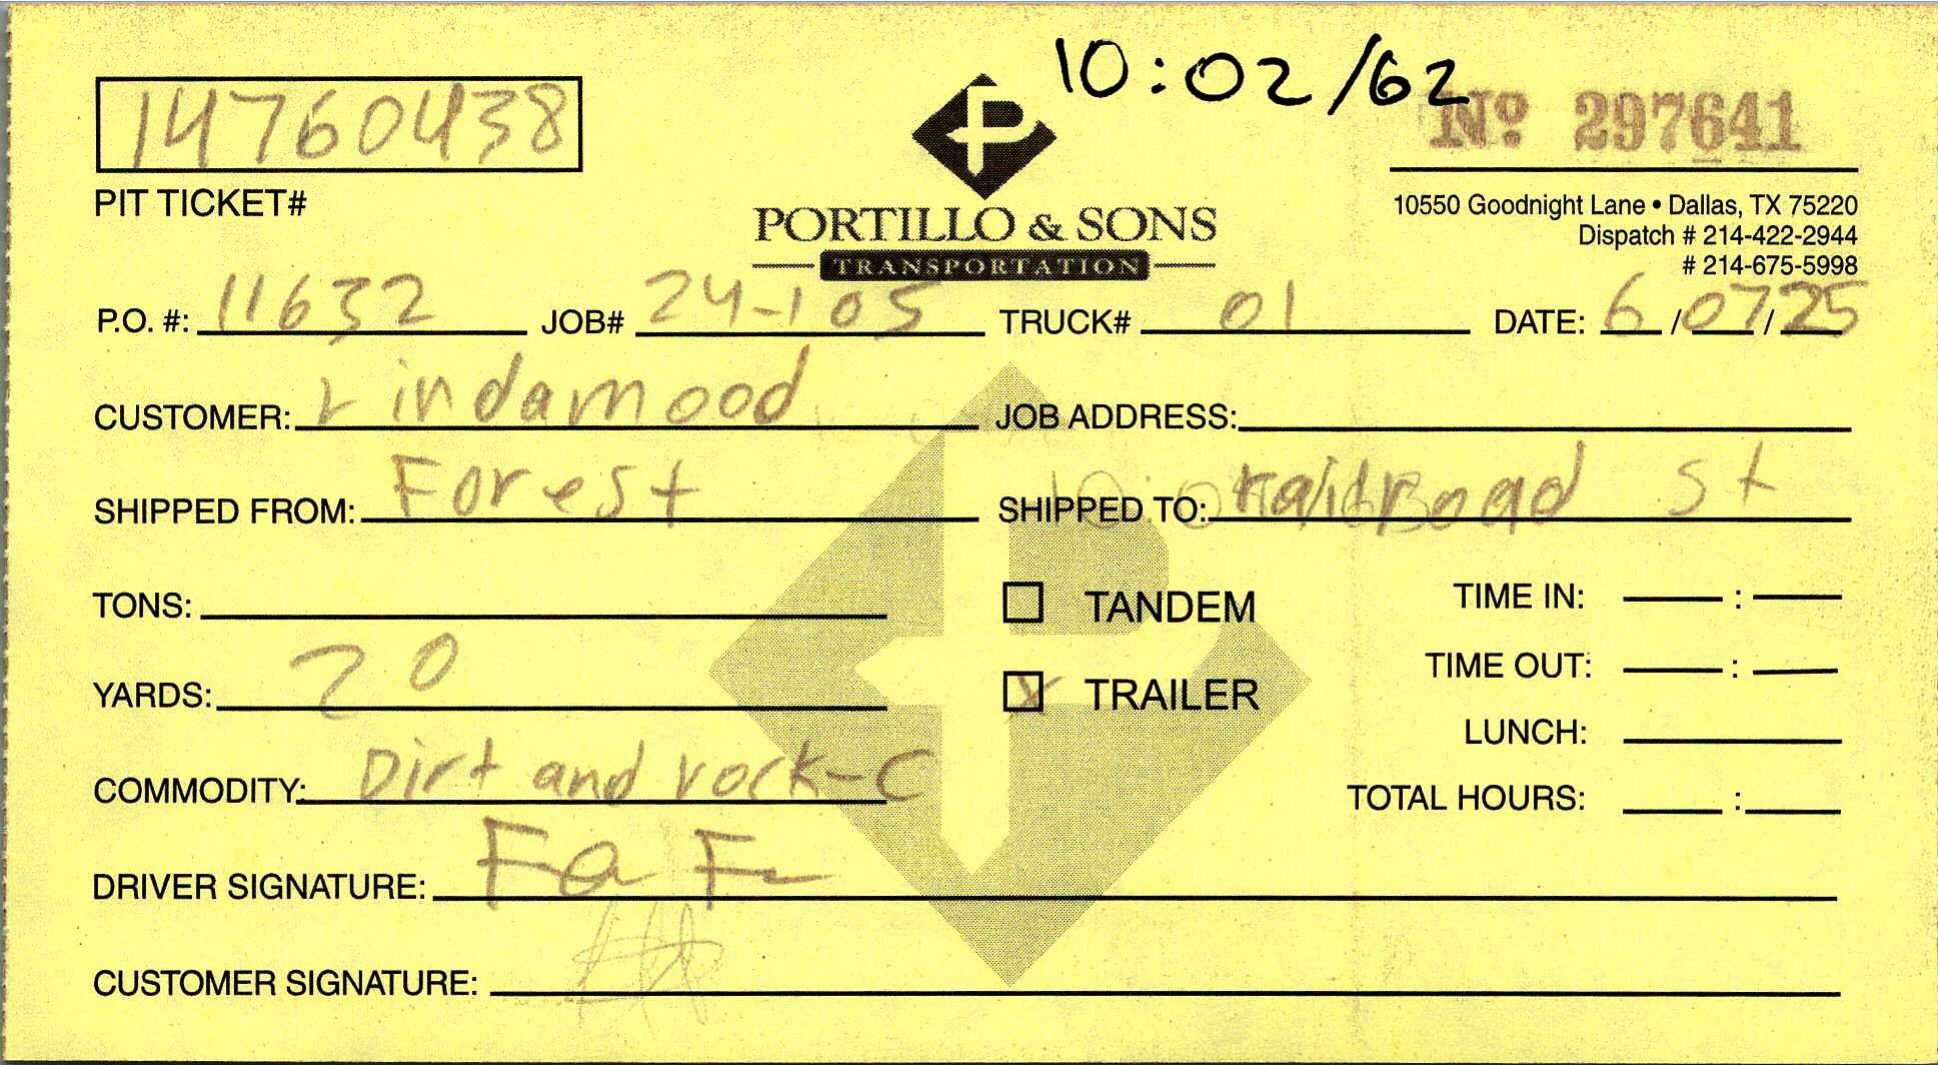 10:02/62
14760438
Nº 297641
PIT TICKET#
P
PORTILLO & SONS
TRANSPORTATION
10550 Goodnight Lane • Dallas, TX 75220
Dispatch # 214-422-2944
# 214-675-5998
P.O. #: 11632 JOB# 24-105 TRUCK# 01 DATE: 6/07/25
CUSTOMER: Lindamood JOB ADDRESS:
SHIPPED FROM: Forest SHIPPED TO: Railroad St
TONS: TANDEM TIME IN: :
YARDS: 20 X TRAILER TIME OUT: :
LUNCH:
COMMODITY: Dirt and rock-C TOTAL HOURS: :
DRIVER SIGNATURE: Fa F
CUSTOMER SIGNATURE: